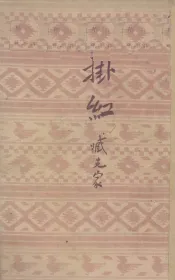 掛紅
臧克家